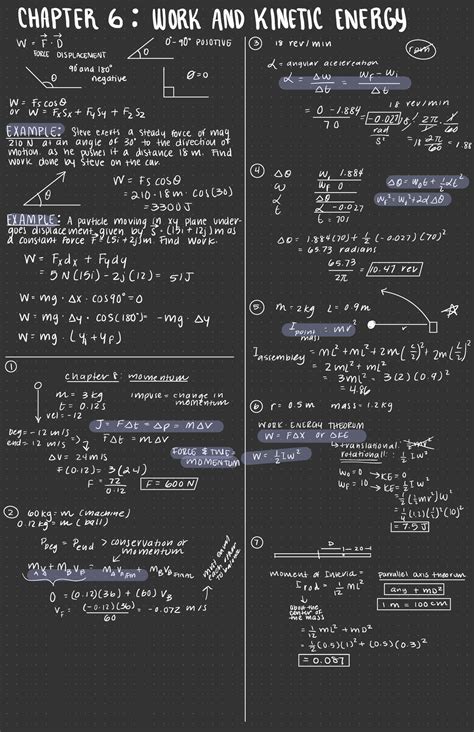 CHAPTER 6: WORK AND KINETIC ENERGY
W = F · D
FORCE DISPLACEMENT
0°-90° POSITIVE
90 and 180°
negative
θ=0
W = Fs cosθ
or W = FxSx + FySy + FzSz
EXAMPLE: Steve exerts a steady force of mag
210 N at an angle of 30° to the direction of
motion as he pushes it a distance 18 m. Find
work done by Steve on the car.
W = Fs cosθ
= 210 · 18 m · cos(30)
= 3300 J
EXAMPLE: A particle moving in xy plane under-
goes displacement given by S = (15i + 12j) m as
a constant force F = (5i + 2j) m. Find work.
W = Fxdx + Fydy
= 5 N (15i) - 2j (12) = 51 J
W = mg · Δx · cos90° = 0
W = mg · Δy · cos(180°) = -mg · Δy
W = mg · (yi + yf)
①
Chapter 8: momentum
m = 3 kg
t = 0.12 s
vel = -12
impulse = change in
momentum
beg = -12 m/s
end = 12 m/s
J = FΔt = Δp = mΔv
FΔt = mΔv
ΔV = 24 m/s
F(0.12) = 3(24)
F = 72
0.12
F = 600 N
FORCE & TIME
MOMENTUM
②
60 kg = m (machine)
0.12 kg = m (ball)
Pbeg = Pend > conservation of
momentum
0 = (0.12)(36) + (60) VB
VF = (-0.12)(36) = -0.072 m/s
60
③ 18 rev/min
rpm
α = angular acceleration
α = Δw = wf - wi
Δt Δt
= 0 - 1.884 = -0.027 rad
70 s²
18 rev/min
= 18 · 2π
60
= 1.88
④
Δθ wi 1.884
w wf 0
α α -0.027
t t = 701
Δθ = w0t + ½αt²
wf² = wi² + 2αΔθ
Δθ = 1.884(70) + ½(-0.027)(70)²
= 65.73 radians
65.73 = 10.47 rev
2π
⑤ m = 2 kg L = 0.9 m
I point mass = mr²
I assembley = mL² + mL² + 2m(L/2)² + 2m(L/2)²
= 2mL² + mL²
= 3mL² = 3(2)(0.9)²
= 4.86
⑥ r = 0.5 m mass = 1.2 kg
WORK-ENERGY THEOREM
W = FΔX or ΔKE
translational: ½mv²
rotational: ½Iw²
W = ½Iw²
w0 = 0 → KE = 0
wf = 10 → KE =
= ½(½mr²)w²
= ¼(1.2)(½)²(10)²
= 7.5 J
⑦
D
1-20-1
moment of Inercia =
I rod = 1/12 mL²
about the
center of
the mass
parrallel axis theorem
any + mD²
1 m = 100 cm
= 1/12 mL² + mD²
= ½(0.5)(1)² + (0.5)(0.3)²
= 0.087